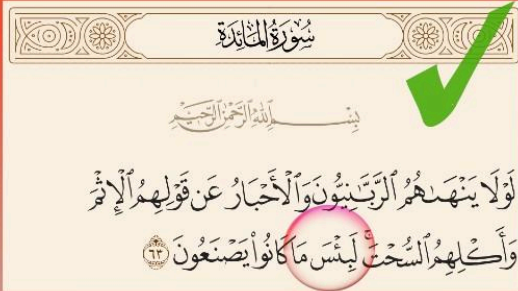 سُورَةُ المَائدَةِ
بِسْمِ ٱللَّهِ ٱلرَّحْمَٰنِ ٱلرَّحِيمِ
لَوْلَا يَنْهَىٰهُمُ ٱلرَّبَّٰنِيُّونَ وَٱلْأَحْبَارُ عَن قَوْلِهِمُ ٱلْإِثْمَ
وَأَكْلِهِمُ ٱلسُّحْتَۚ لَبِئْسَ مَا كَانُوا۟ يَصْنَعُونَ ٦٣